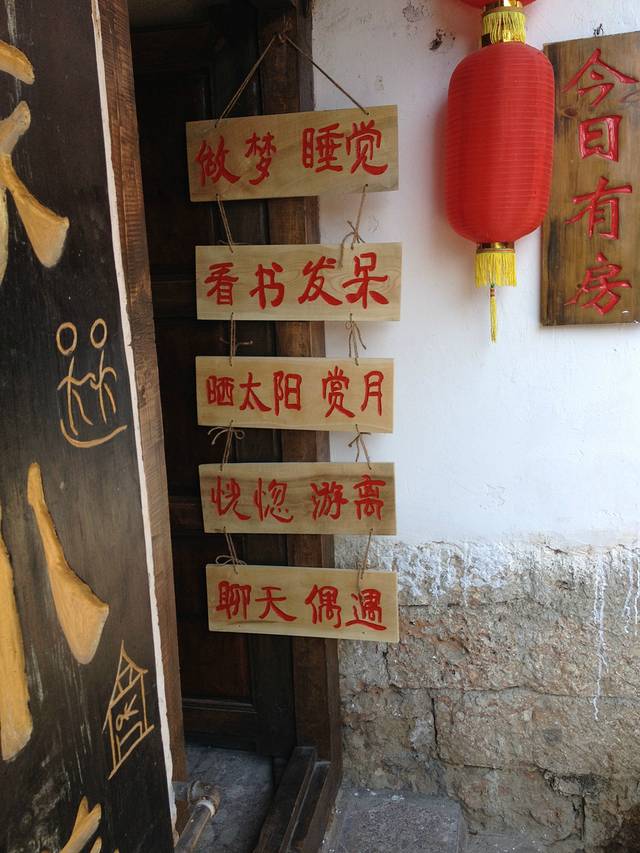 做梦 睡觉
看书 发呆
晒太阳 赏月
恍惚 游离
聊天 偶遇
今日有房
OK